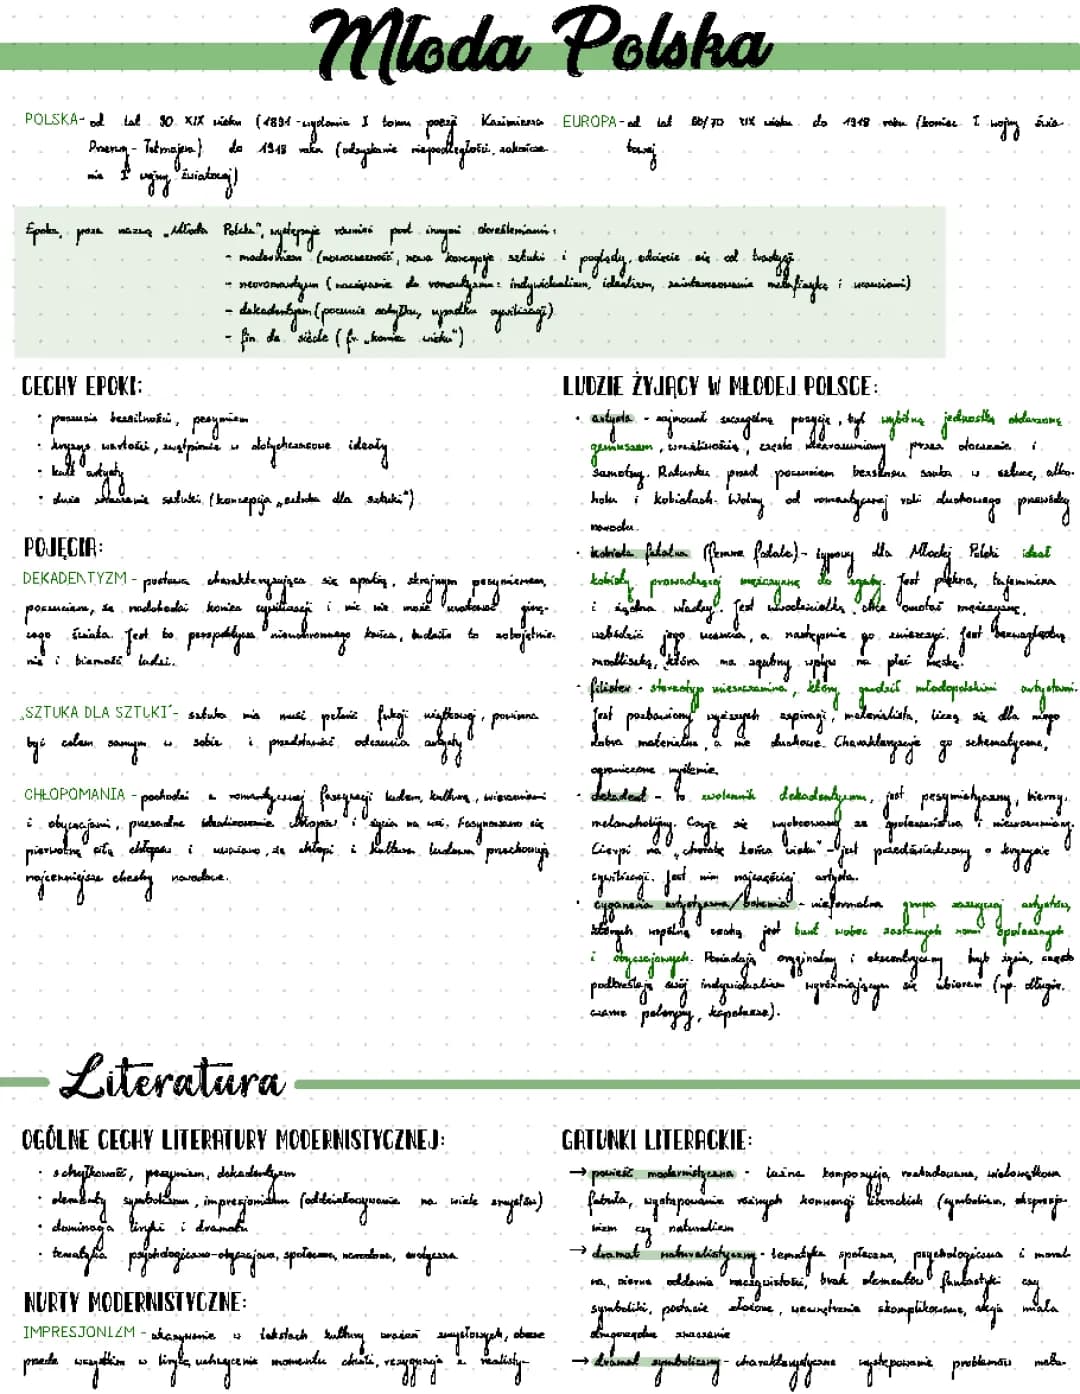 Młoda Polska
POLSKA- od lat 90 XIX wieku (1891 - wydanie I tomu poezji Kazimierza
Przerwy - Tetmajera) do 1918 roku (odzyskanie niepodległości, zakończe
nie I wojny światowej)
EUROPA- od lat 60/70 XIX wieku do 1918 roku (koniec I wojny świa-
towej
Epoka, poza nazwą „Młoda Polska", występuje również pod innymi określeniami:
- modernizm (nowoczesność, nowa koncepcja sztuki i poglądy, odcięcie się od tradycji
- neoromantyzm (nawiązanie do romantyzmu: indywidualizm, idealizm, zainteresowanie metafizyką i uczuciami)
- dekadentyzm (poczucie schyłku, upadku cywilizacji)
- fin de siècle (fr. „koniec wieku")
CECHY EPOKI:
• poczucie bezsilności, pesymizm
• kryzys wartości, zwątpienie w dotychczasowe ideały
• kult artysty
• duże znaczenie sztuki (koncepcja „sztuka dla sztuki")
POJĘCIA:
DEKADENTYZM - postawa charakteryzująca się apatią, skrajnym pesymizmem,
poczuciem, że nadchodzi koniec cywilizacji i nic nie może uratować giną-
cego świata. Jest to perspektywa nieuchronnego końca, budziło to zobojętnie-
nie i bierność ludzi.
„SZTUKA DLA SZTUKI"- sztuka nie musi pełnić fukcji użytkowej, powinna
być celem samym w sobie i przedstawiać odczucia artysty
CHŁOPOMANIA - pochodzi z romantycznej fascynacji ludem, kulturą, wierzeniami
i obyczajami, przesadne idealizowanie chłopów i życia na wsi. Fascynowano się
pierwotną siłą chłopów i uważano, że chłopi i kultura ludowa przechowują
najcenniejsze chechy narodowe.
LUDZIE ŻYJĄCY W MŁODEJ POLSCE:
• artysta - zajmował szczególną pozycję, był wybitną jednostką obdarzoną
geniuszem, wrażliwością, często niezrozumiany przez otoczenie i
samotny. Ratunku przed poczuciem bezsensu szuka w sztuce, alko-
holu i kobietach. Wolny od romantycznej roli duchowego przewódcy
narodu.
• kobieta fatalna (femme fatale)- typowy dla Młodej Polski ideał
kobiety prowadzącej mężczyznę do zguby. Jest piękna, tajemnicza
i żądna władzy. Jest uwodzicielką, chce omotać mężczyznę,
wzbudzić jego uczucia, a następnie go zniszczyć. Jest bezwzględną
modliszką, która ma zgubny wpływ na płeć męską.
• filister - stereotyp mieszczanina, którym gardzili młodopolskimi artystami.
Jest pozbawiony wyższych aspiracji, materialista, liczą się dla niego
dobra materialne, a nie duchowe. Charakteryzuje go schematyczne,
ograniczone myślenie.
• dekadent - to zwolennik dekadentyzmu, jest pesymistyczny, bierny,
melancholijny. Czuje się wyobcowany ze społeczeństwa i niezrozumiany.
Cierpi na „chorobę końca wieku"- jest przeświadczony o kryzysie
cywilizacji. Jest nim najczęściej artysta.
• cyganeria artystyczna/bohema - nieformalna grupa artystów,
których wspólną cechą jest bunt wobec zastanych norm społecznych
i obyczajowych. Posiadają oryginalny i ekscentryczny tryb życia, często
podkreślają swój indywidualizm wyróżniającym się ubiorem (np. długie,
czarne peleryny, kapelusze).
Literatura
OGÓLNE CECHY LITERATURY MODERNISTYCZNEJ:
• schyłkowość, pesymizm, dekadentyzm
• elementy symbolizmu, impresjonizmu (oddziaływanie na wiele zmysłów)
• dominacja liryki i dramatu
• tematyka psychologiczno-obyczajowa, społeczna, narodowa, erotyczna
NURTY MODERNISTYCZNE:
IMPRESJONIZM - ukazywanie w tekstach kultury wrażeń zmysłowych, obecne
przede wszystkim w liryce, uchwycenie momentu chwili, rezygnacja z realisty-
GATUNKI LITERACKIE:
→ powieść modernistyczna - luźna kompozycja, rozbudowana, wielowątkowa
fabuła, występowanie różnych konwencji literackich (symbolizm, ekspresjo-
nizm czy naturalizm
→ dramat naturalistyczny - tematyka społeczna, psychologiczna i moral-
na, wierne oddanie rzeczywistości, brak elementów fantastyki czy
symboliki, postacie złożone, wewnętrznie skomplikowane, akcja miała
drugorzędne znaczenie
→ dramat symboliczny - charakterystyczne występowanie problemów meta-